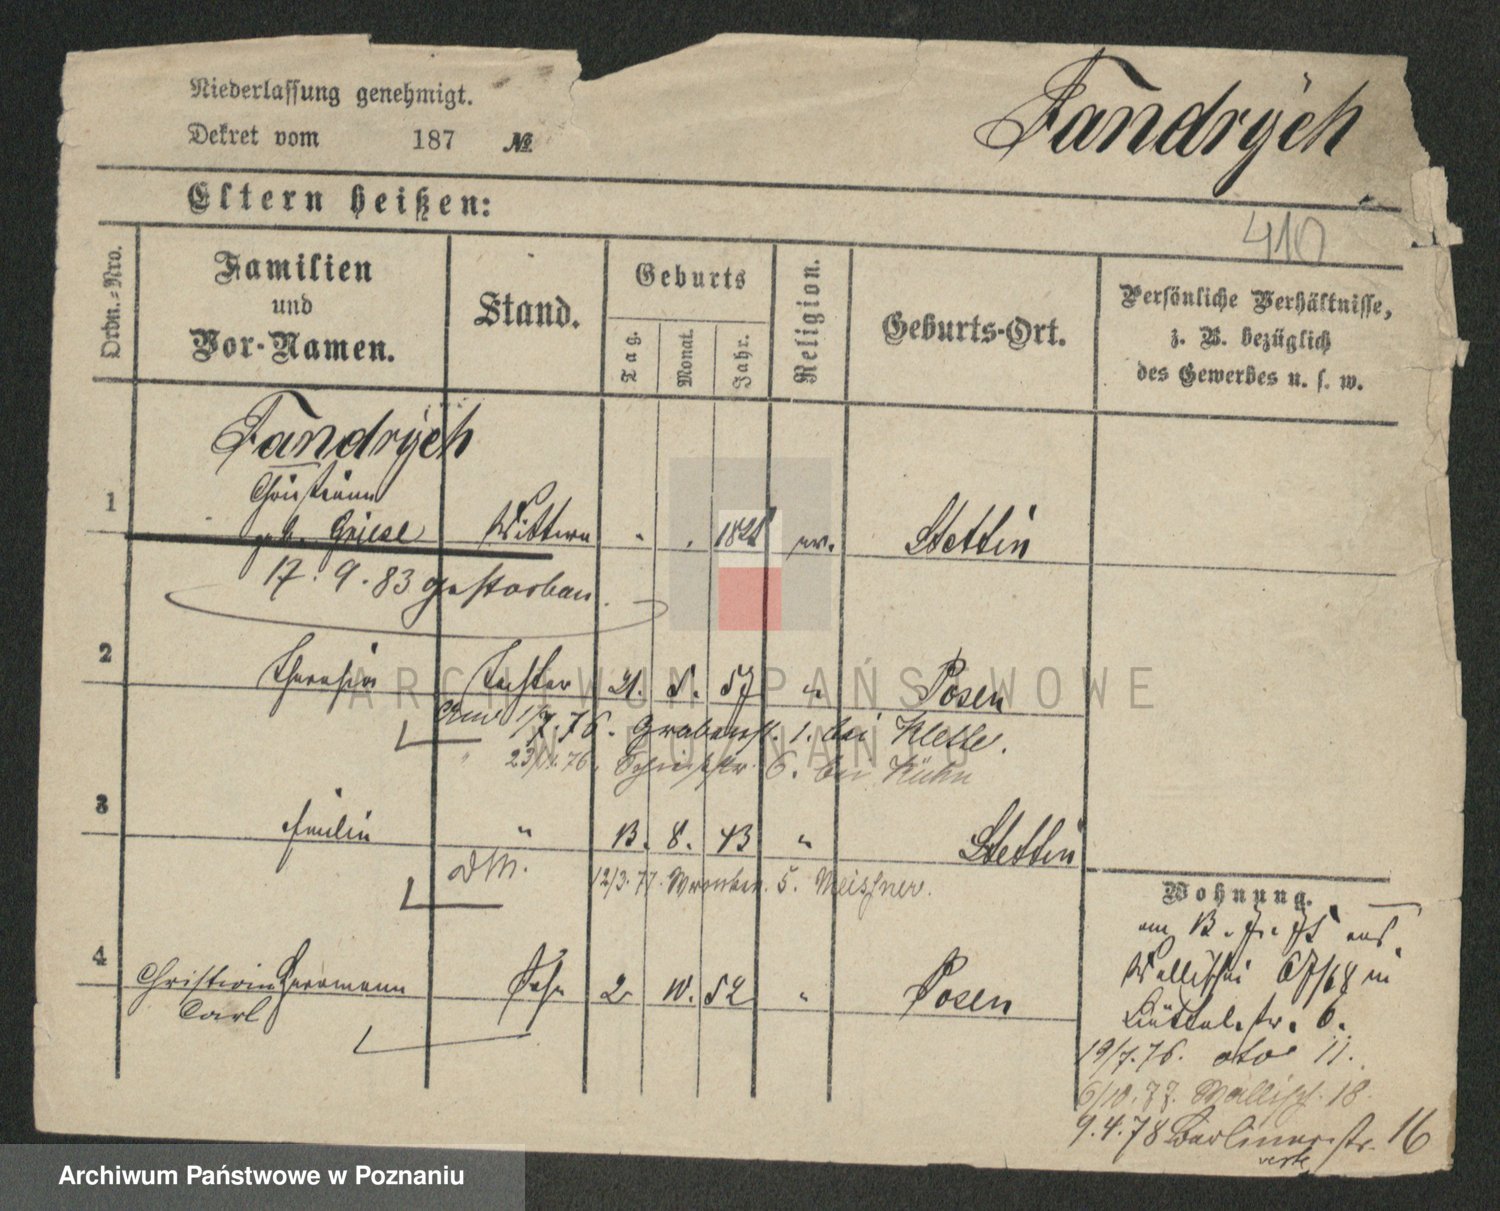 Niederlassung genehmigt.
Dekret vom 187 №
Fandrÿch
Eltern heißen:
410
Ordn.=Nro.
Familien
und
Vor-Namen.
Stand.
Geburts
Tag.
Monat.
Jahr.
Religion.
Geburts-Ort.
Persönliche Verhältnisse,
z. B. bezüglich
des Gewerbes u. s. w.
Fandrÿch
Christiane
1 geb. Griese Wittwe " " 1821 ev. Stettin
17. 9. 83 gestorben.
2 Theresia Tochter 21. 5. 57 " Posen
1/7. 76. Grabenst. 1. bei Klette.
76. 6. bei Kühn
3 Emilie " 13. 8. 43 " Stettin
DM. 12/3. 77. 5. Meissner.
4 Christian Herrmann Sohn 2 10. 52 " Posen
Carl
Wohnung.
am 13. 7. 75 aus
Wallischei 67/68 in
Büttelstr. 6.
19/7. 76. dto 11.
6/10. 77. Wallisch. 18.
9. 4. 78 Berlinerstr. 16
ARCHIWUM PAŃSTWOWE
W POZNANIU
Archiwum Państwowe w Poznaniu